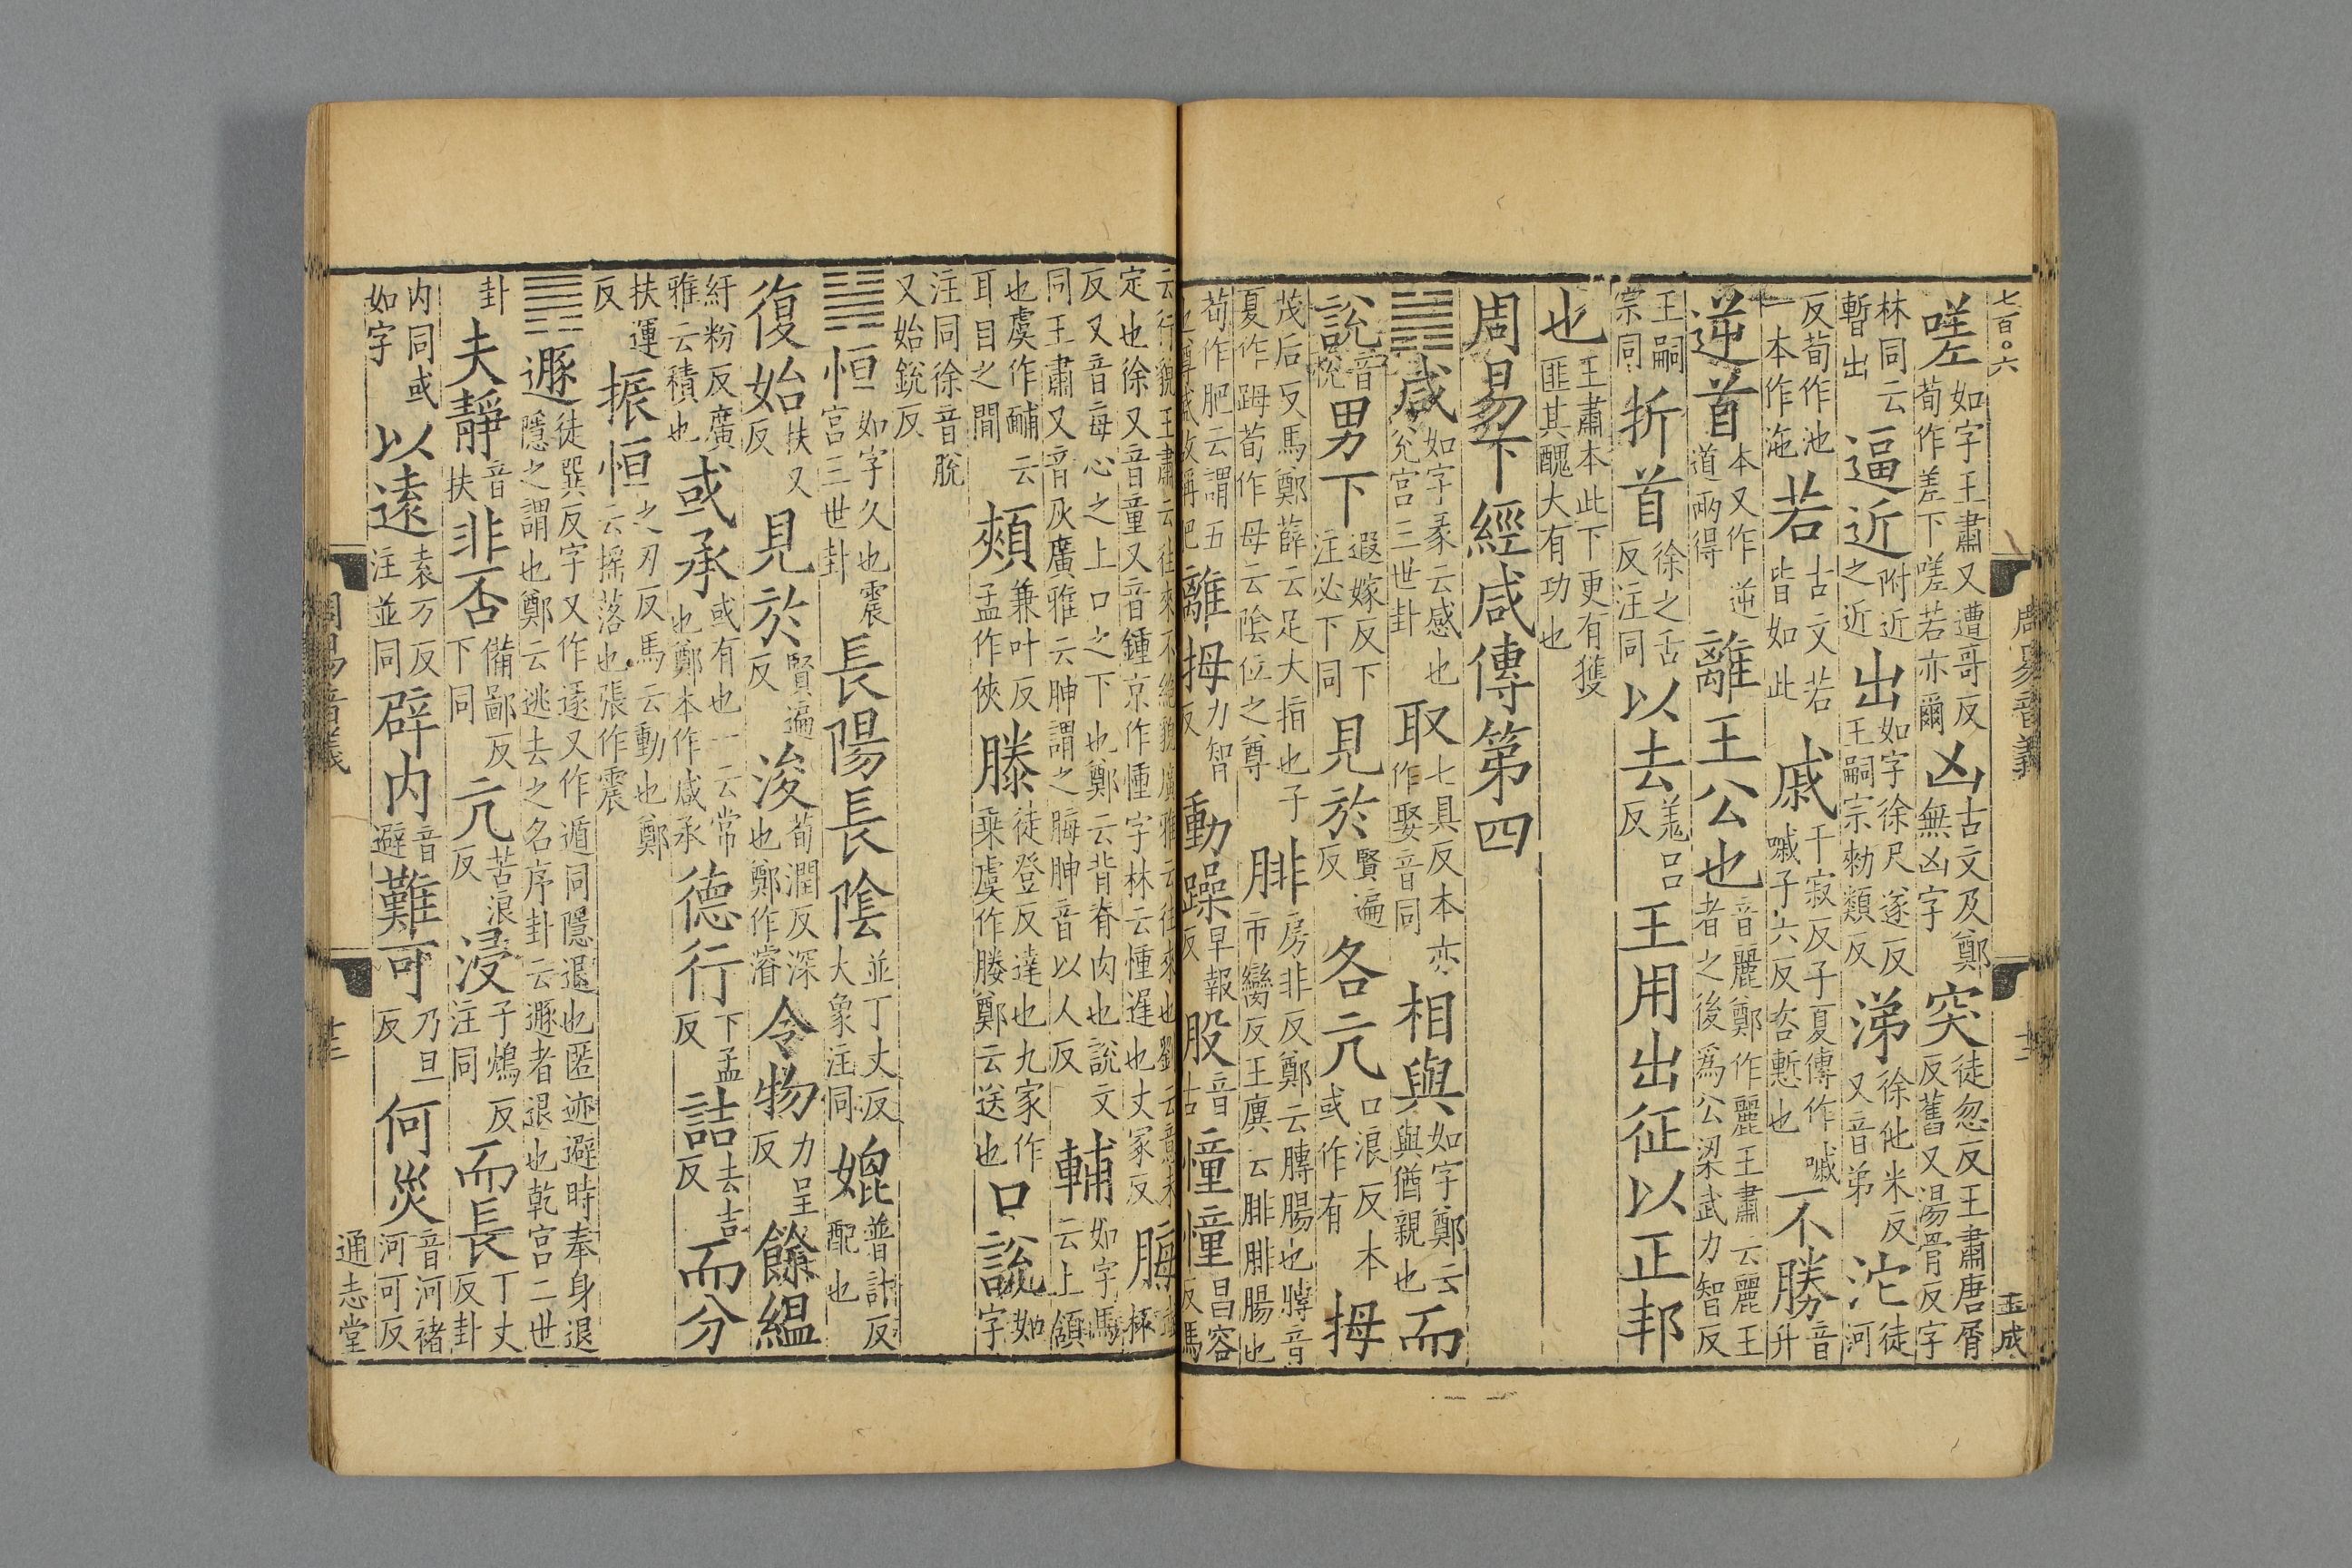 七百〇六
周易音義
十二
玉成
嗟如字王肅又遭哥反荀作差下嗟若亦爾凶古文及鄭無凶字突徒忽反王肅唐屑反舊又湯骨反字
林同云暫出逼近附近之近出如字徐尺遂反王嗣宗勑類反涕徐他米反又音弟沱徒河
反荀作池一本作沲若古文若皆如此戚千寂反子夏傳作嘁嘁子六反咨慙也不勝音升
逆首本又作逆道兩得離王公也音麗鄭作麗王肅云麗王者之後爲公梁武力智反
王嗣宗同折首徐之舌反注同以去羌呂反王用出征以正邦
也王肅本此下更有獲匪其醜大有功也
周易下經咸傳第四
䷞咸如字彖云感也兊宮三世卦取七具反本亦作娶音同相與如字鄭云與猶親也而
說音悅男下遐嫁反下注必下同見於賢遍反各亢口浪反本或作有拇
茂后反馬鄭薛云足大指也子夏作䟦荀作母云陰位之尊腓房非反鄭云膞腸也膞音市臠反王廙云腓腓腸也
荀作肥云謂五也尊盛故稱肥離拇力智反動躁早報反股音古憧憧昌容反馬
云行貌王肅云往來不絕貌廣雅云往來也劉云意未定也徐又音童又音鍾京作憧字林云憧遲也丈冢反脢武杯
反又音每心之上口之下也鄭云背脊肉也說文同王肅又音灰廣雅云胂謂之脢胂音以人反輔如字馬云上頷
也虞作酺云耳目之間頰兼叶反孟作俠滕徒登反達也九家作乗虞作媵鄭云送也口說如字
注同徐音脫又始銳反
䷟恒如字久也震宮三世卦長陽長陰並丁丈反大象注同媲普計反配也
復始扶又反見於賢遍反浚荀潤反深也鄭作濬令物力呈反餘縕
紆粉反廣雅云積也或承或有也一云常也鄭本作咸承德行下孟反詰去吉反而分
扶運反振恒之刃反馬云動也鄭云搖落也張作震
䷠遯徒巽反字又作遂又作遁同隱退也匿迹避時奉身退隱之謂也鄭云逃去之名序卦云遯者退也乾宮二世
卦夫靜音扶非否備鄙反下同亢苦浪反浸子鴆反注同而長丁丈反卦
內同或如字以遠袁万反注並同辟內音避難可乃旦反何災音河褚河可反
周易音義
十三
通志堂